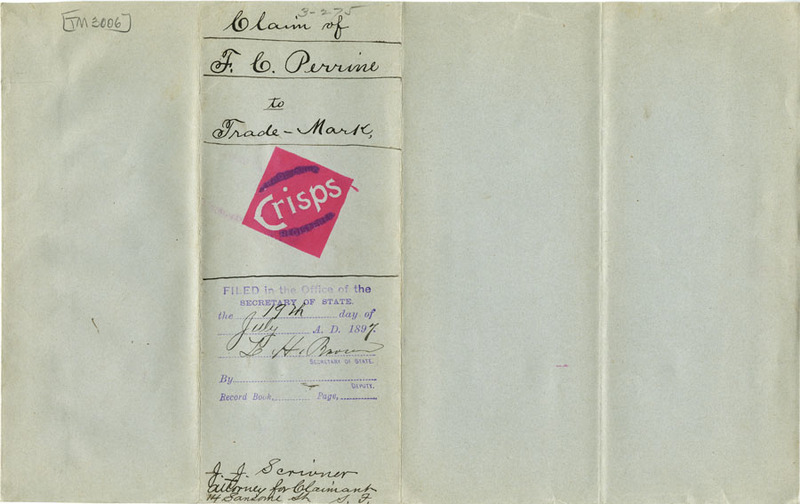 TM 3006
3-275
Claim of
F. C. Perrine
to
Trade-Mark,
Crisps
FILED in the Office of the
SECRETARY OF STATE.
the 19th day of
July A. D. 1897.
L. H. Brown
SECRETARY OF STATE.
By
DEPUTY.
Record Book, Page,
J. J. Scrivner
Attorney for Claimant
14 Sansome St S. F.